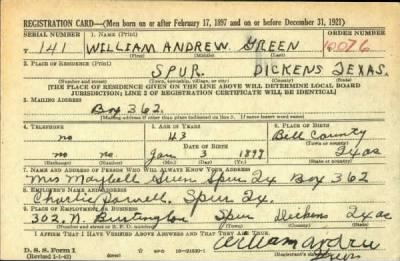 REGISTRATION CARD—(Men born on or after February 17, 1897 and on or before December 31, 1921)
SERIAL NUMBER 1. NAME (Print) ORDER NUMBER
T 141 WILLIAM ANDREW GREEN 12076
(First) (Middle) (Last)
2. PLACE OF RESIDENCE (Print)
SPUR. DICKENS TEXAS.
(Number and street) (Town, township, village, or city) (County) (State)
[THIS PLACE OF RESIDENCE GIVEN ON THE LINE ABOVE WILL DETERMINE LOCAL BOARD
JURISDICTION; LINE 2 OF REGISTRATION CERTIFICATE WILL BE IDENTICAL]
3. MAILING ADDRESS
Box 362.
(Mailing address if other than place indicated on line 2. If same insert word same)
4. TELEPHONE 5. AGE IN YEARS 6. PLACE OF BIRTH
no 43 Bell County
DATE OF BIRTH (Town or county)
no Jan 3 1899 Texas
(Exchange) (Number) (Mo.) (Day) (Yr.) (State or country)
7. NAME AND ADDRESS OF PERSON WHO WILL ALWAYS KNOW YOUR ADDRESS
Mrs Green Spur Tx Box 362
8. EMPLOYER'S NAME AND ADDRESS
Charlie Spur. Tx.
9. PLACE OF EMPLOYMENT OR BUSINESS
302. N. Burlington Spur Dickens Texas
(Number and street or R. F. D. number) (Town) (County) (State)
I AFFIRM THAT I HAVE VERIFIED ABOVE ANSWERS AND THAT THEY ARE TRUE.
D. S. S. Form 1
(Revised 1-1-42) (over)
William